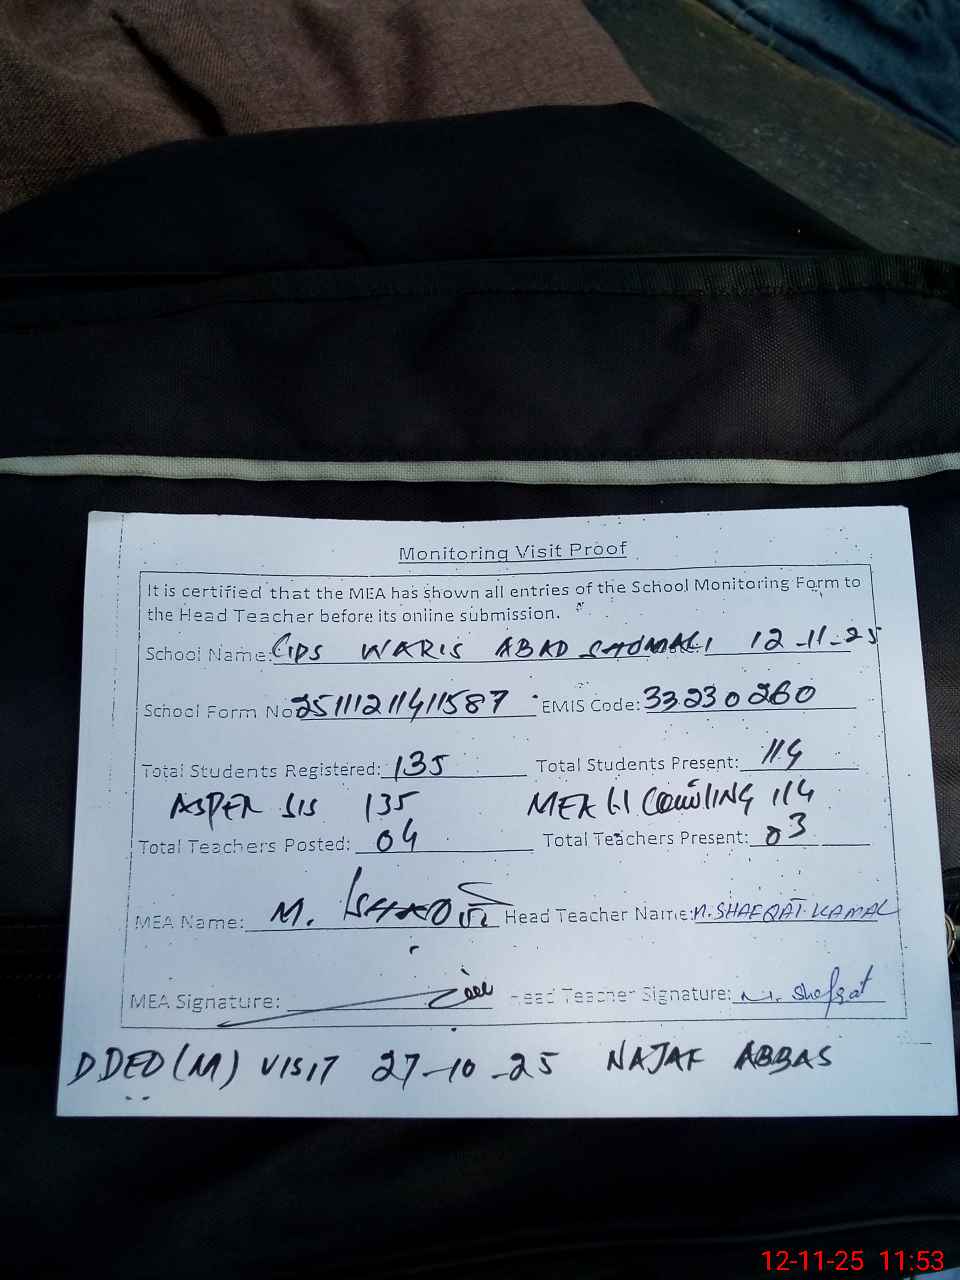 Monitoring Visit Proof
It is certified that the MEA has shown all entries of the School Monitoring Form to
the Head Teacher before its online submission.
School Name: GPS WARIS ABAD SHOMALI 12-11-25
School Form No 25111211411587 EMIS Code: 33230260
Total Students Registered: 135 Total Students Present: 114
ASPER SIS 135 MEA 114
Total Teachers Posted: 04 Total Teachers Present: 03
MEA Name: M. ISHAQ Head Teacher Name: M. SHAFQAT KAMAL
MEA Signature: Head Teacher Signature: M. Shafqat
DDEO (M) VISIT 27-10-25 NAJAF ABBAS
12-11-25 11:53